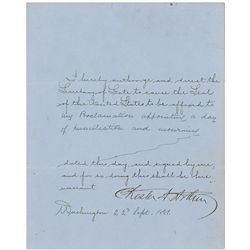 I hereby authorize and direct the
Secretary of State to cause the Seal
of the United States to be affixed to
my Proclamation appointing a day
of humiliation and mourning
dated this day, and signed by me,
and for so doing this shall be his
warrant
Chester A. Arthur
Washington 22d Sept. 1881.